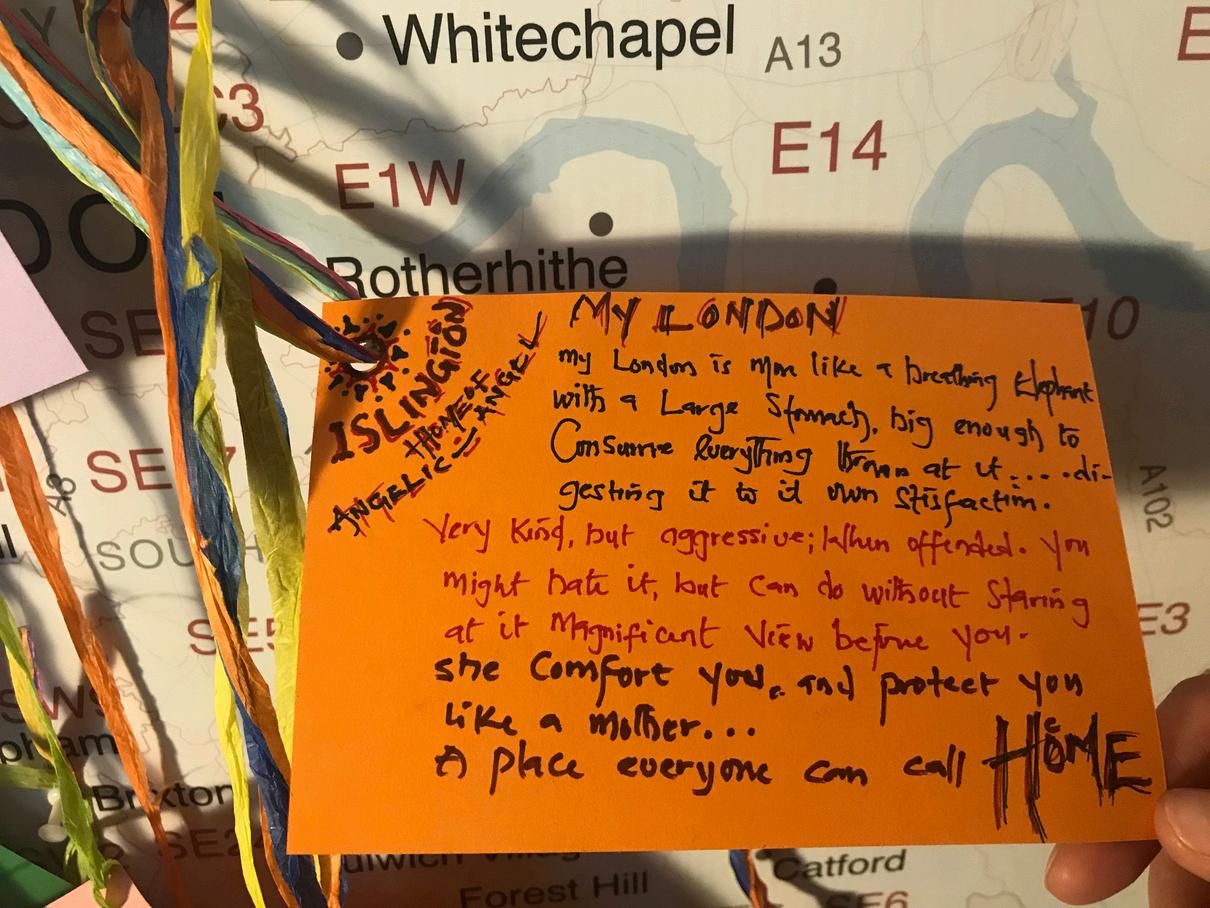 Whitechapel
A13
E
C3
E1W
E14
Rotherhithe
DO
SE
10
SE 7
A3
A102
SOUTH
SE5
E3
SW9
pham
Brixton
SE2
ulwich Village
Forest Hill
Catford
SE6
ISLINGTON
HOME OF
ANGELIC ANGEL
MY LONDON
my London is more like a breathing Elephant
with a Large Stomach, big enough to
Consume everything thrown at it.... di-
gesting it to it own Stisfaction.
Very Kind, but aggressive; When offended. You
might hate it, but can do without Staring
at it Magnificant View before you.
she Comfort you, and protect you
like a mother...
A place everyone can call HOME